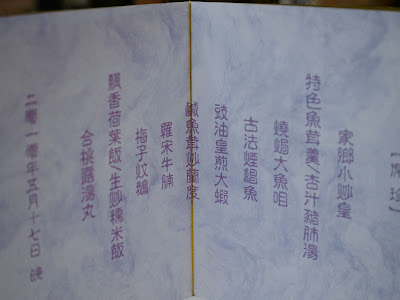 家鄉小炒皇
特色魚茸羹/杏汁豬肺湯
燒焗大魚咀
古法煙鯧魚
豉油皇煎大蝦
鹹魚茸炒蘭度
羅宋牛腩
梅子炆鵝
飄香荷葉飯/生炒糯米飯
合桃露湯丸
二零一零年五月十七日 晚